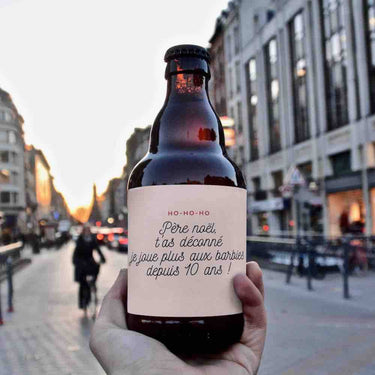 HO-HO-HO
Père noël,
t'as déconné
je joue plus aux barbies
depuis 10 ans !